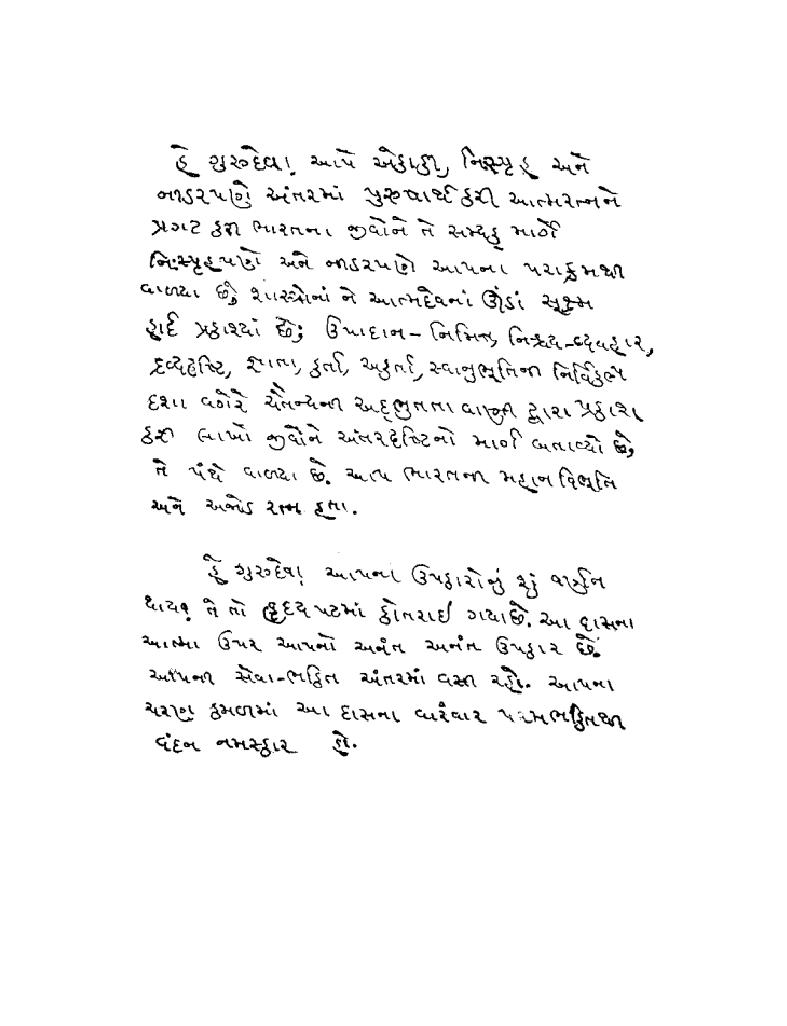 હે ગુરુદેવ! આપે એકાકી, નિસ્પૃહ અને
નીડરપણે અંતરમાં પુરુષાર્થ કરી આત્મરત્નને
પ્રગટ કરી ભારતના જીવોને તે સમ્યક્ માર્ગે
નિઃસ્પૃહપણે અને નીડરપણે આપના પરાક્રમથી
વાળ્યા છે, શાસ્ત્રોનાં ને આત્મદેવનાં ઊંડાં સૂક્ષ્મ
હાર્દ પ્રકાશ્યાં છે; ઉપાદાન–નિમિત્ત, નિશ્ચય–વ્યવહાર,
દ્રવ્યદૃષ્ટિ, જ્ઞાતા, કર્તા, અકર્તા, સ્વાનુભૂતિની નિર્વિકલ્પ
દશા વગેરે ચૈતન્યની અદ્ભુતતા વાણી દ્વારા પ્રકાશ
કરી લાખો જીવોને અંતરદૃષ્ટિનો માર્ગ બતાવ્યો છે,
તે પંથે વાળ્યા છે. આપ ભારતની મહાન વિભૂતિ
અને અજોડ રત્ન હતા.
હે ગુરુદેવ! આપના ઉપકારોનું શું વર્ણન
થાય? તે તો હૃદયપટમાં કોતરાઈ ગયા છે. આ દાસના
આત્મા ઉપર આપનો અનંત અનંત ઉપકાર છે.
આપની સેવા–ભક્તિ અંતરમાં વસી રહો. આપના
ચરણ કમળમાં આ દાસના વારંવાર પરમભક્તિથી
વંદન નમસ્કાર હો.